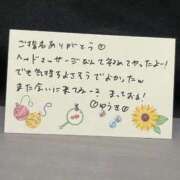 ご指名ありがとう
ヘッドマッサージなんて初めてやったよー!
でも気持ちよさそうでよかったw
また会いに来てねーっ まってるお!
ゆうき